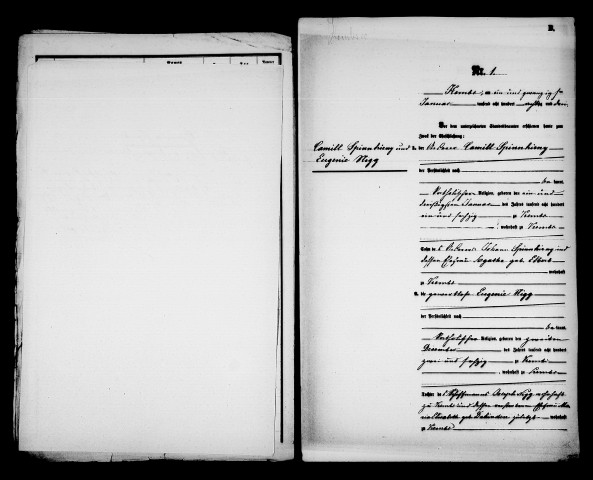 B.
Nr. 1.
Kembs, am ein und zwanzigsten
Januar tausend acht hundert achtzig und drei.
Vor dem unterzeichneten Standesbeamten erschienen heute zum
Zweck der Eheschließung:
Camill Spinnhirny und
Eugenie Nigg
1. der Ackerer Camill Spinnhirny
der Persönlichkeit nach
be kannt,
katholischer Religion, geboren den ein und
dreißigsten Januar des Jahres tausend acht hundert
ein und sechzig zu Kembs
, wohnhaft zu Kembs
Sohn des Ackerers Johann Spinnhirny und
dessen Ehefrau Agathe geb.
wohnhaft
zu Kembs
2. die gewerblose Eugenie Nigg
der Persönlichkeit nach
be kannt,
katholischer Religion, geboren den zweiten
Dezember des Jahres tausend acht hundert
zwei und sechzig zu Kembs
, wohnhaft zu Kembs
Tochter des Schiffmanns Joseph Nigg wohnhaft
zu Kembs und dessen verstorbenen Ehefrau Ma-
ria Elisabeth geb. zuletzt wohnhaft
zu Kembs